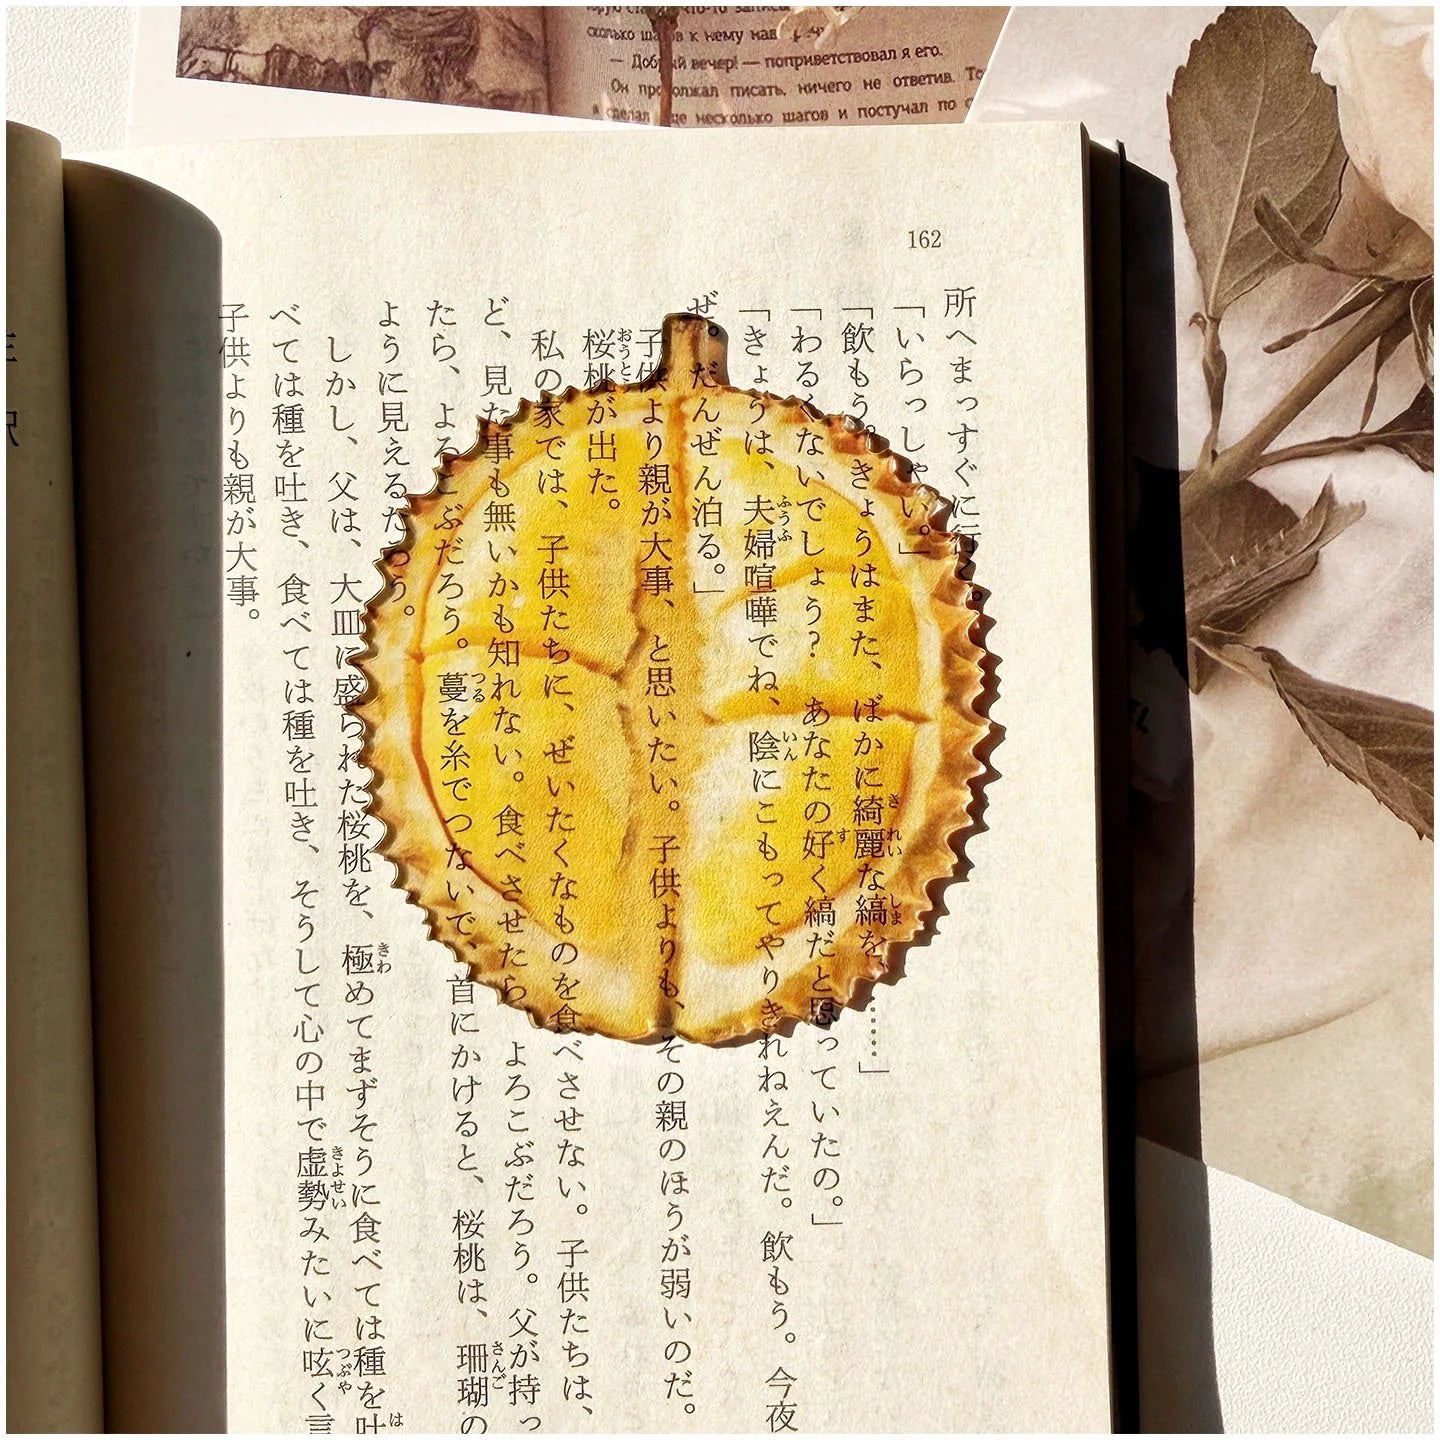 сколько шагов к нему нав
— Добрый вечер! — поприветствовал я его.
Он продолжал писать, ничего не ответив. То
я сделал еще несколько шагов и постучал по с
162
所へまっすぐに行く。
「いらっしゃい。」
「飲もう。きょうはまた、ばかに綺麗な縞を、……」
「わるくないでしょう? あなたの好く縞だと思っていたの。」
「きょうは、夫婦喧嘩でね、陰にこもってやりきれねえんだ。飲もう。今夜
ぜ。だんぜん泊る。」
子供より親が大事、と思いたい。子供よりも、その親のほうが弱いのだ。
桜桃が出た。
私の家では、子供たちに、ぜいたくなものを食べさせない。子供たちは、
ど、見た事も無いかも知れない。食べさせたら、よろこぶだろう。父が持っ
たら、よろこぶだろう。蔓を糸でつないで、首にかけると、桜桃は、珊瑚の
ように見えるだろう。
しかし、父は、大皿に盛られた桜桃を、極めてまずそうに食べては種を吐
べては種を吐き、食べては種を吐き、そうして心の中で虚勢みたいに呟く言
子供よりも親が大事。